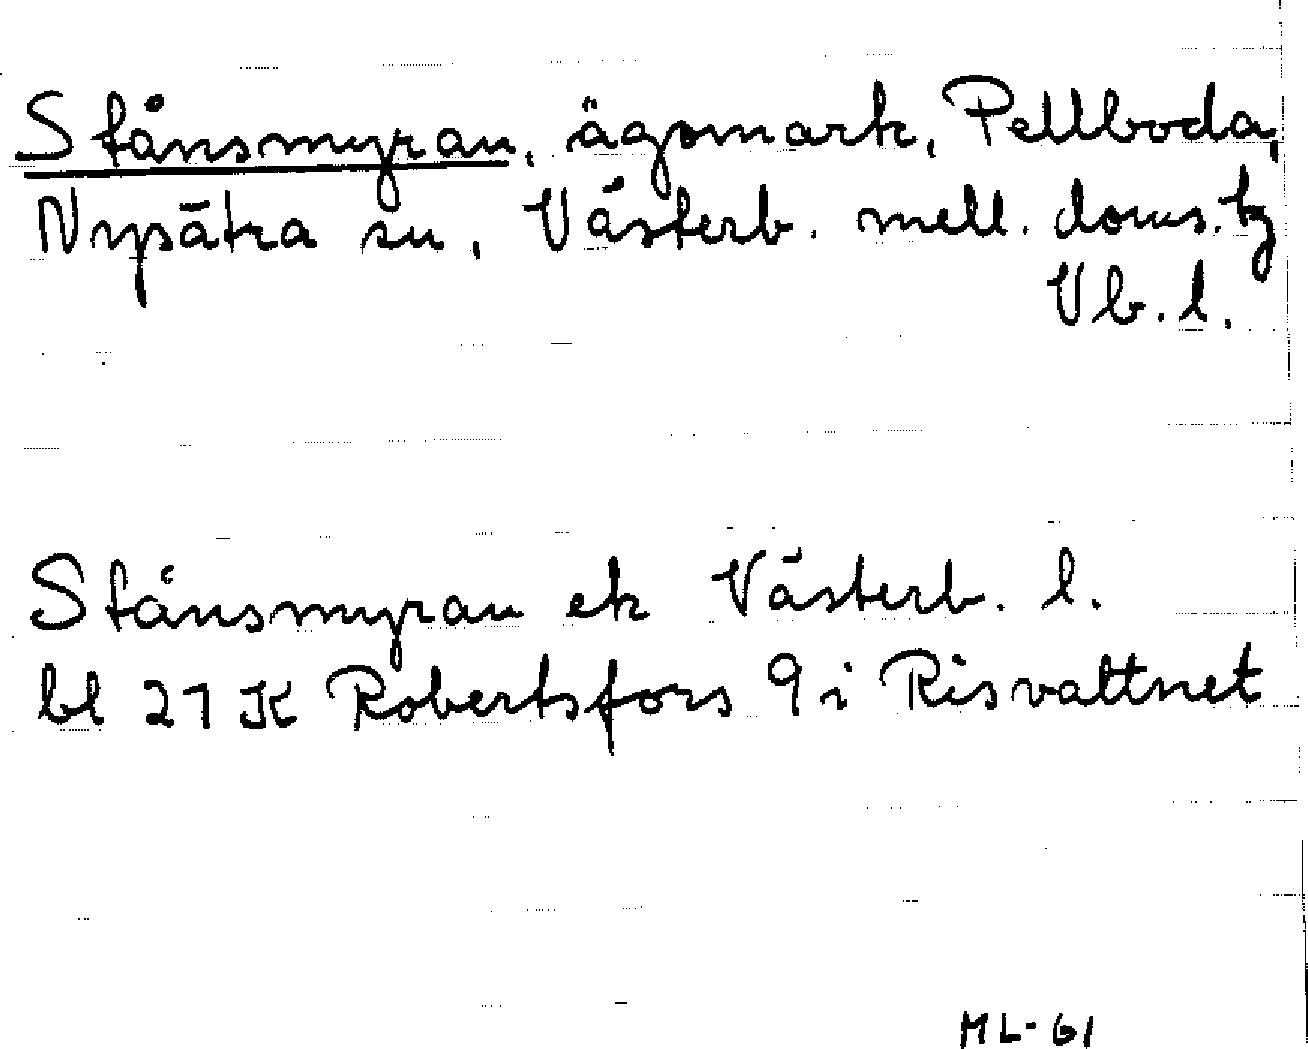 Stånsmyran, ägomark, Pellboda,
Nysätra sn, Västerb. mell. doms. tg
Vb. l.
Stånsmyran ek Västerb. l.
bl 21 K Robertsfors 9 i Risvattnet
ML-61